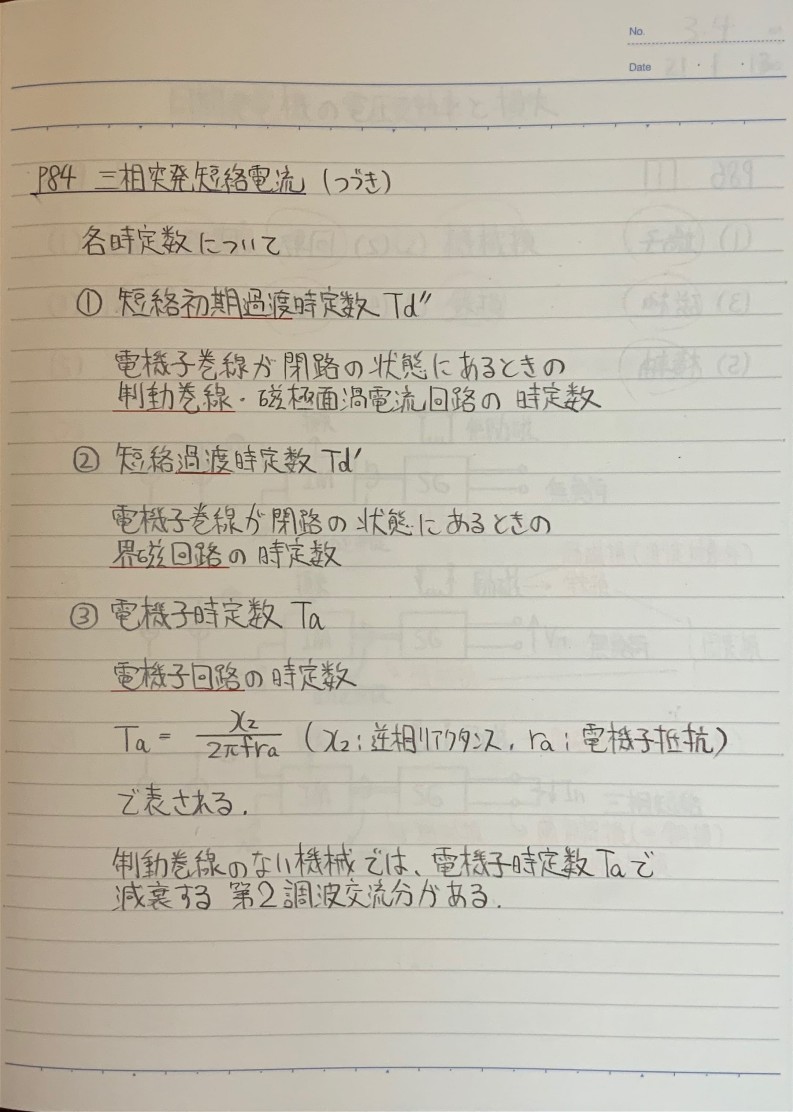 No.
Date
P84 三相突発短絡電流 (つづき)
各時定数について
① 短絡初期過渡時定数 Td″
電機子巻線が閉路の状態にあるときの
制動巻線・磁極面渦電流回路の時定数
② 短絡過渡時定数 Td′
電機子巻線が閉路の状態にあるときの
界磁回路の時定数
③ 電機子時定数 Ta
電機子回路の時定数
Ta = x₂/2πfra (x₂ : 逆相リアクタンス, ra : 電機子抵抗)
で表される.
制動巻線のない機械では、電機子時定数 Taで
減衰する第2調波交流分がある.